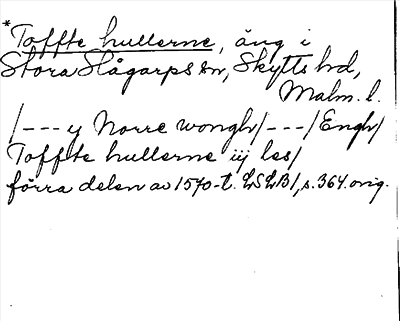 *Toffte hullerne, äng i
Stora Slågarps sn, Skytts hd,
Malm. l.
/---y Norre wongh/---/Engh/
Toffte hullerne iij les/
förra delen av 1570-t. LSLB/, s. 364. orig.